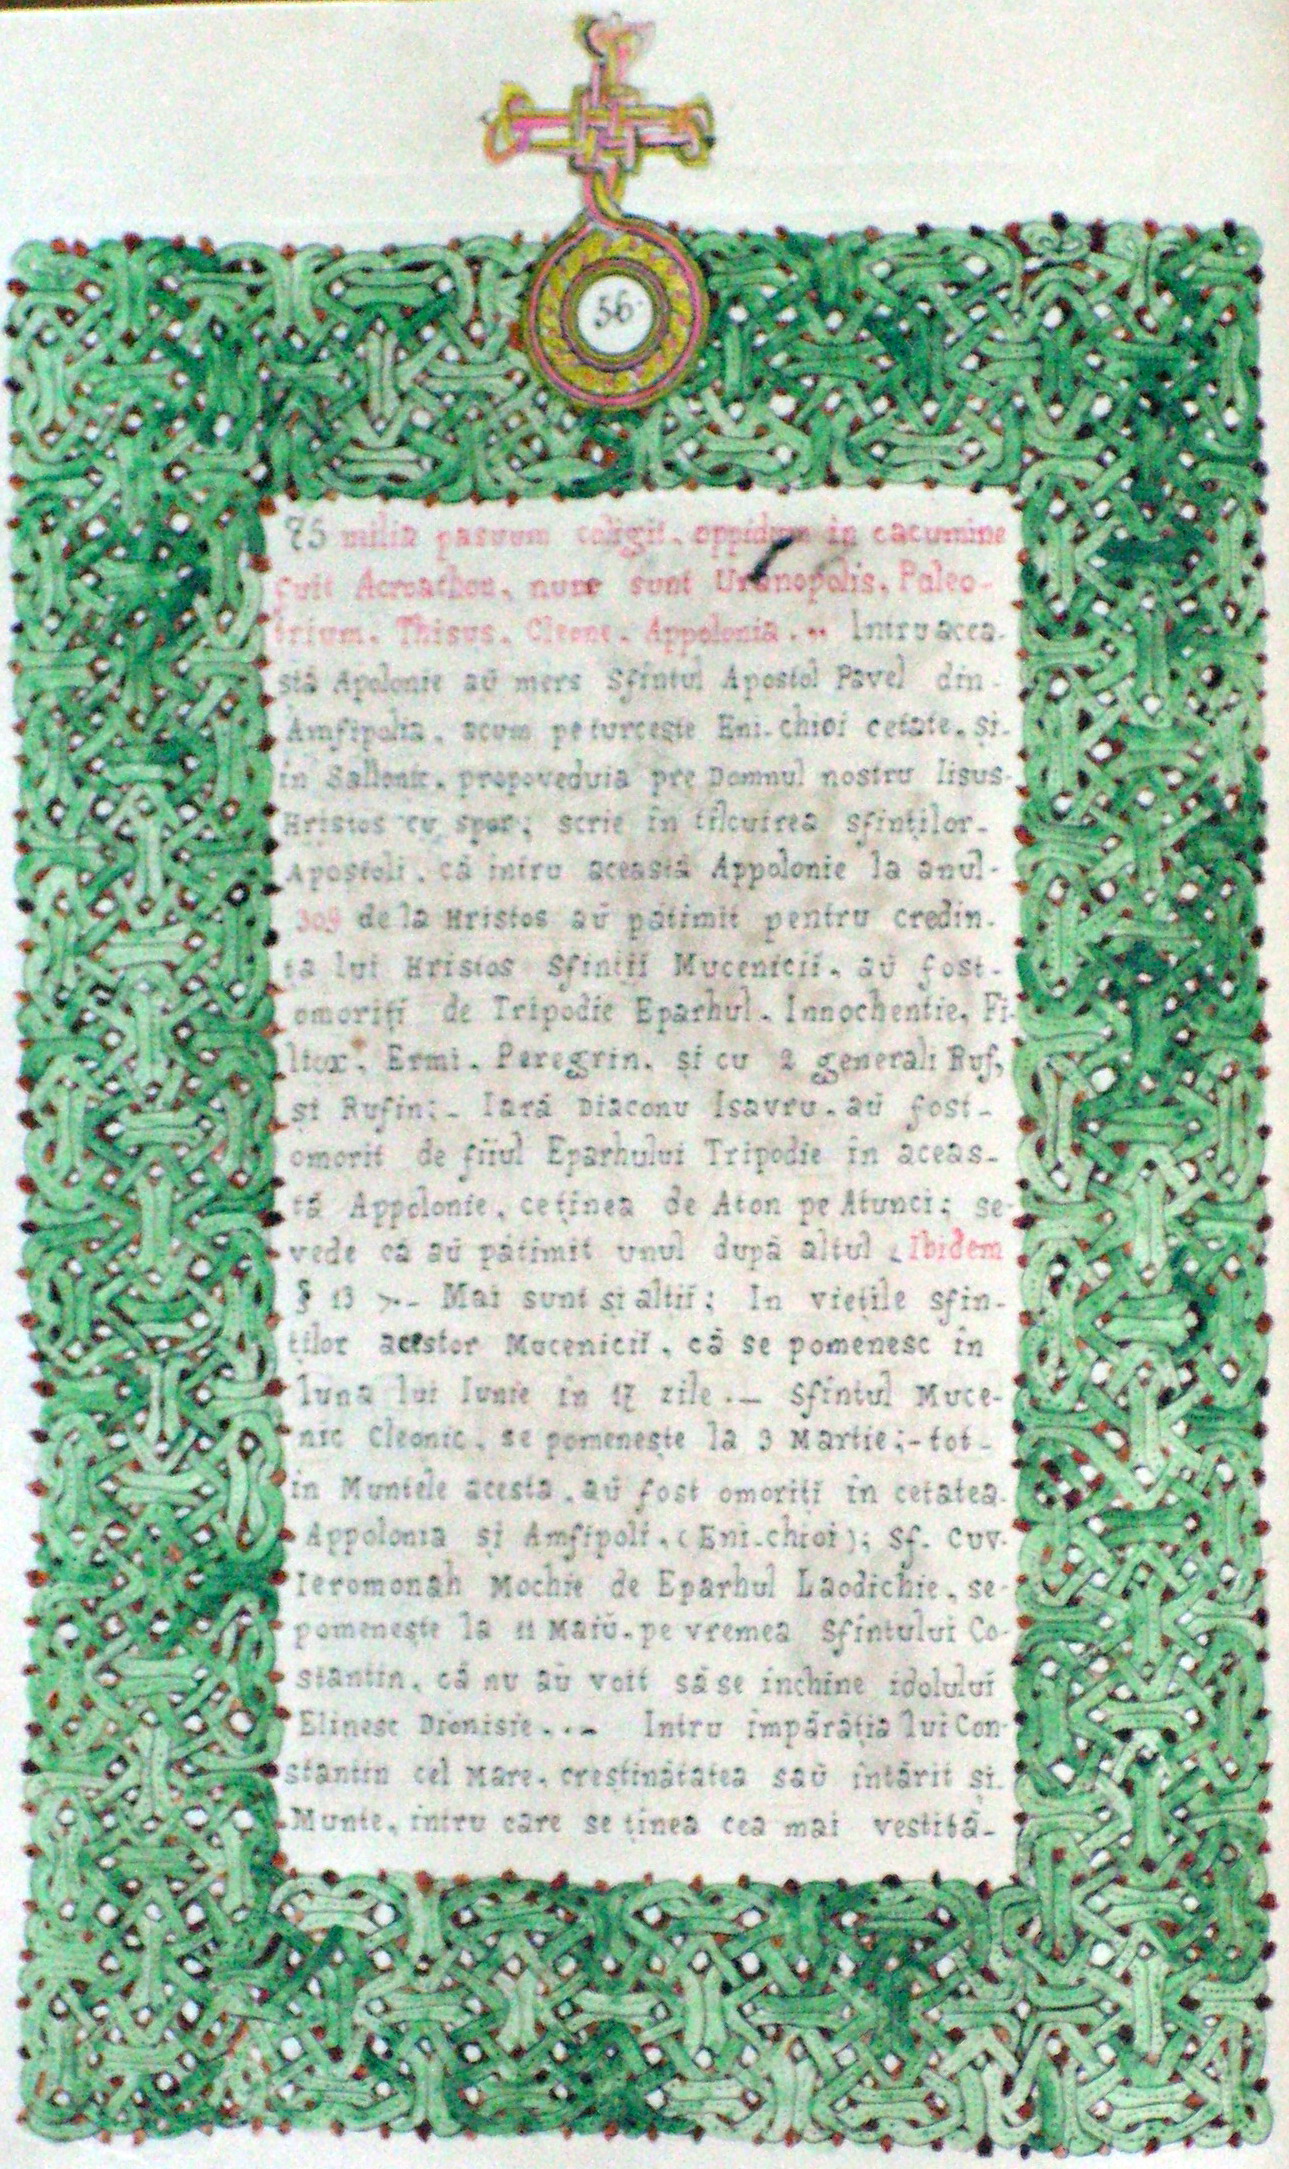 56.
75 milia pasuum coligit. oppidum in cacumine
fuit Acroathon, nunc sunt Uranopolis, Paleo-
trium. Thisus. Cleone. Appolonia. ·· Intruacea.
stă Apolonie aŭ mers Sfîntul Apostol Pavel din.
Amfipolia. acum peturcește Eni-chioi cetate, și.
în Sallonic. propoveduia pre Domnul nostru Iisus.
Hristos cu spor; scrie în tîlcuirea sfinților-
Apostoli. că intru această Appolonie la anul-
309 de la Hristos aŭ pătimit pentru credin-
ța lui Hristos Sfinții Mucenicii. aŭ fost-
omoriți de Tripodie Eparhul. Innochentie, Fi-
licx. Ermi. Peregrin. și cu 2 generali Ruf,
și Rufin;- Iară Diaconu Isavru. aŭ fost-
omorit de fiiul Eparhului Tripodie în aceas-
tă Appolonie, ceținea de Aton pe Atunci; se-
vede că aŭ pătimit unul după altul. Ibidem
§ 13 >.- Mai sunt și altii; In viețile sfin-
ților acestor Mucenicii. că se pomenesc în
luna lui Iunie în 17 zile.- Sfîntul Muce-
nic Cleonic. se pomenește la 3 Martie;- tot-
în Muntele acesta. aŭ fost omoriți în cetatea.
Appolonia și Amfipoli. (Eni-chioi); Sf. Cuv.
Ieromonah Mochie de Eparhul Laodichie. se-
pomenește la 11 Maiŭ. pe vremea Sfîntului Co-
stantin. că nu aŭ voit să se închine idoluluĭ
Elinesc Dionisie... - Intru împărăția lui Con-
stantin cel Mare. creștinătatea saŭ întărit și.
Munte. intru care se ținea cea mai vestită-